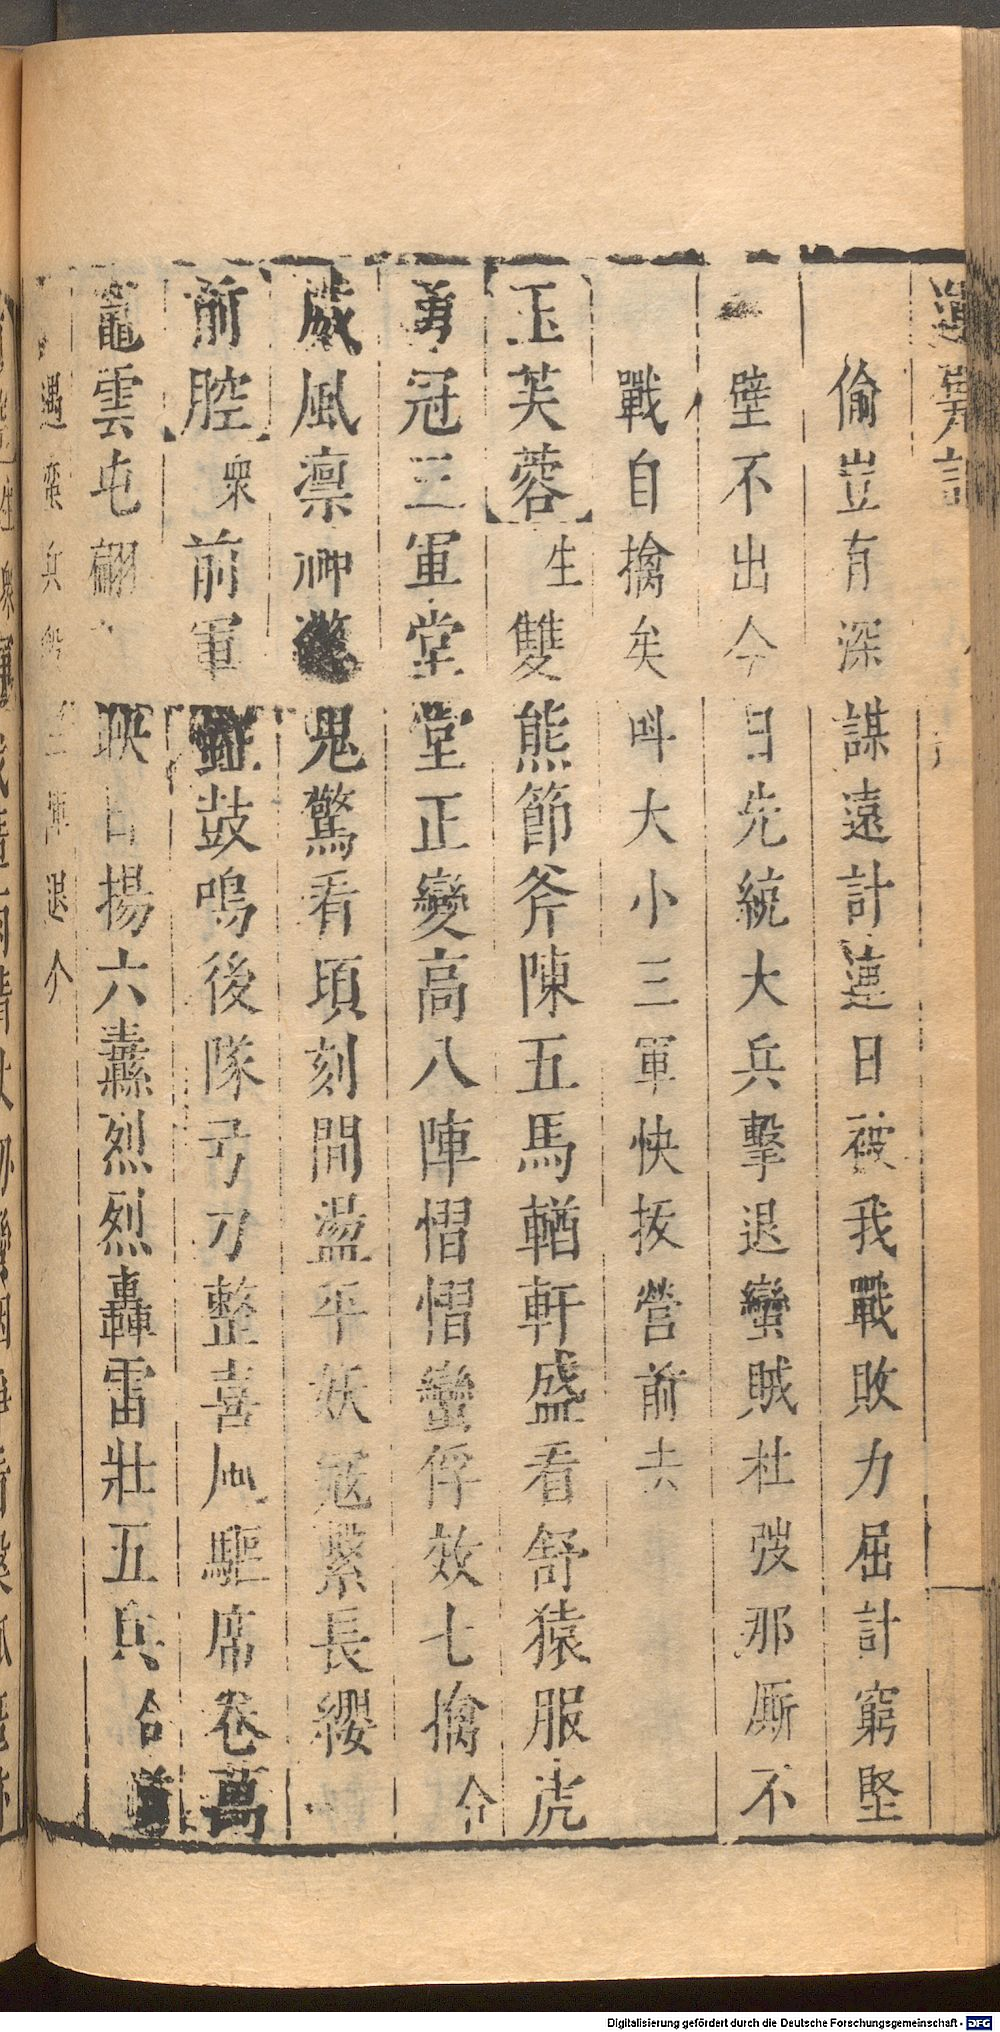 偷豈有深謀遠計連日被我戰敗力屈計窮堅
壁不出今日先統大兵擊退蠻賊杜弢那厮不
戰自擒矣呌大小三軍快拔營前去
玉芙蓉生雙熊節斧陳五馬輶軒盛看舒猿服虎
勇冠三軍堂堂正變高八陣慴慴蠻俘效七擒合
威風凛神鬼驚看頃刻間盪平妖冦繫長纓
前腔衆前軍鉦鼓鳴後隊弓刀整喜風驅席卷萬
竈雲屯翩映日揚六纛烈烈轟雷壯五兵合前
遇蠻兵戰三陣退介
Digitalisierung gefördert durch die Deutsche Forschungsgemeinschaft - DFG